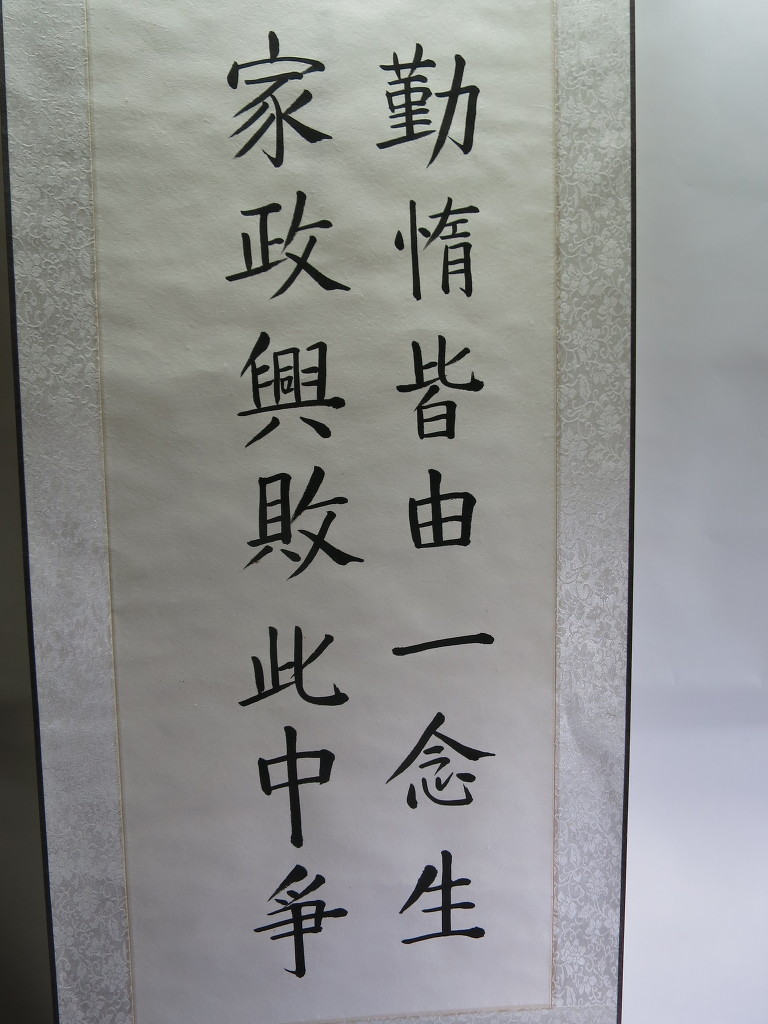 勤惰皆由一念生
家政興敗此中爭